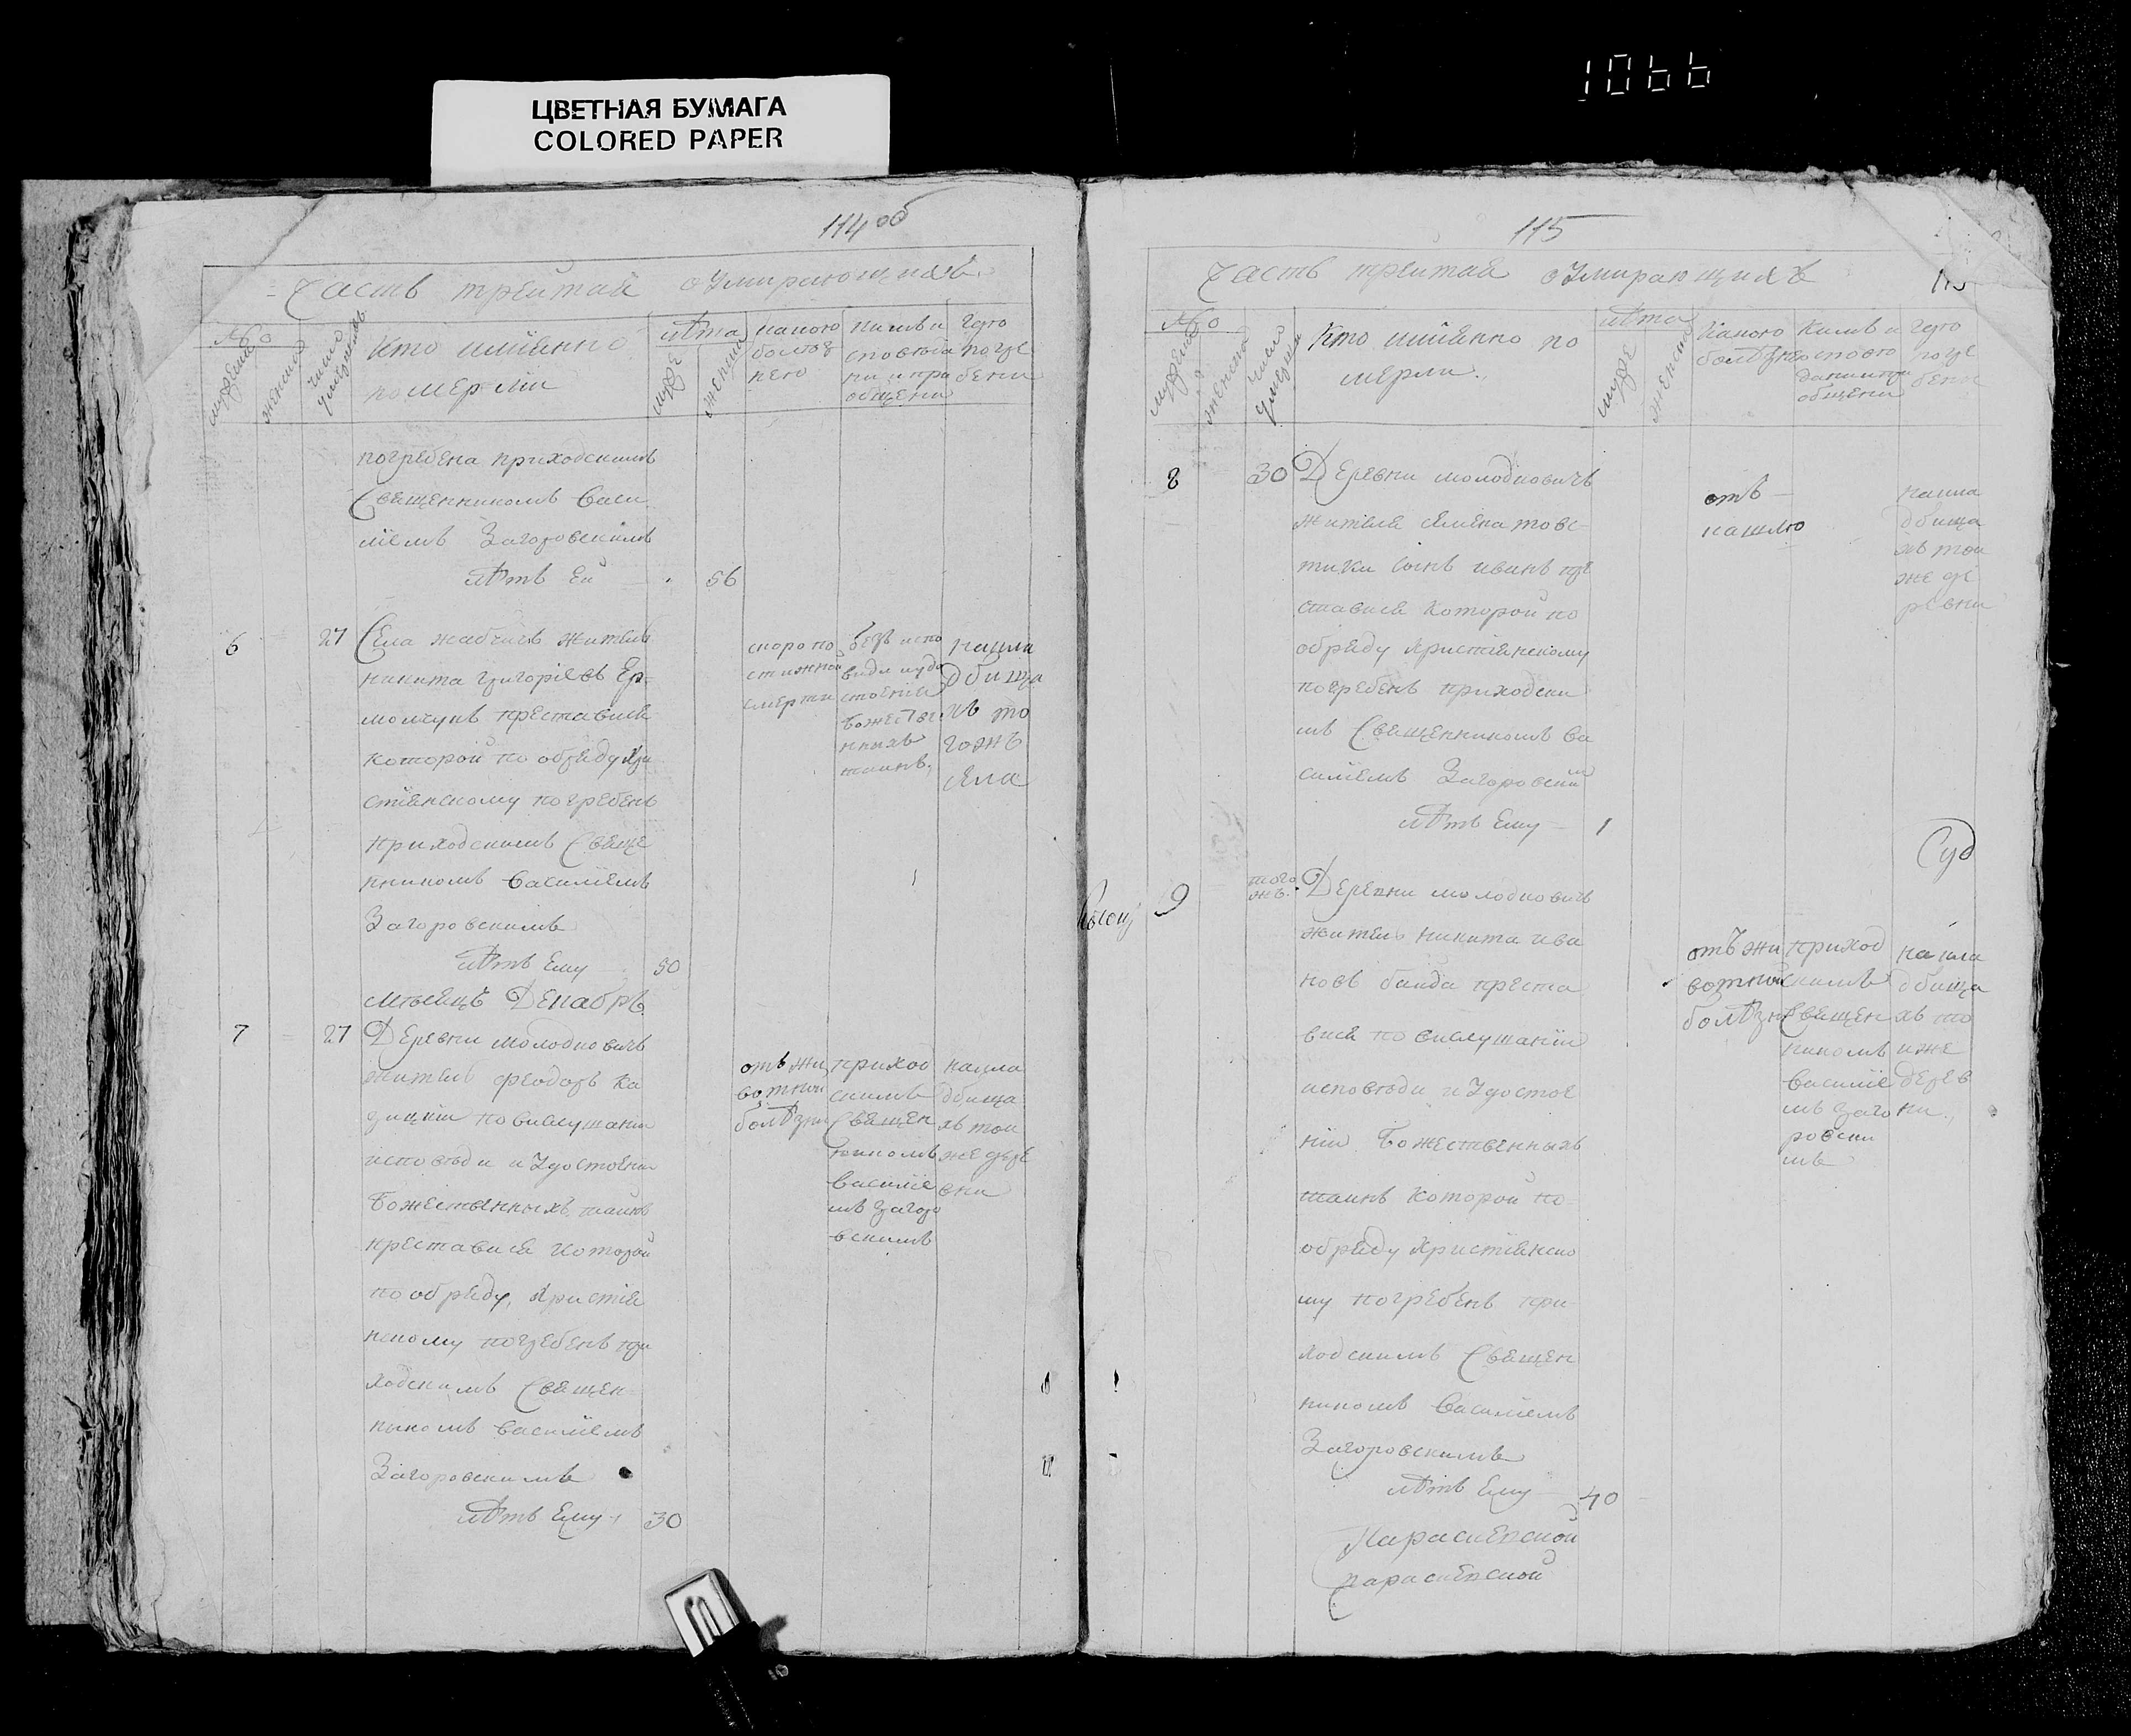 1066
ЦВЕТНАЯ БУМАГА
COLORED PAPER
114 об
Часть третïтая о Умирающихъ
№ о
мужеска
женска
число умершихъ
Кто имiянно
померли
лѣта
муже
женска
какою
болѣз
нею
кимъ и
сповѣда
ни и при
общени
гдѣ
погре
бени
погребена приходскимъ
Священникомъ Васи
лïемъ Загоровскимъ
лѣтъ ей
56
6
27
Села жабчичъ житель
никита григорïевъ Ер-
молчукъ преставися
которой по обряду Хри
стïянскому погребенъ
приходскимъ Свяще
нникомъ Василïемъ
Загоровскимъ
лѣтъ Ему
50
скоропо
стижной
смерти
безъ испо
види иудо
стоенïя
Божестве
нныхъ
таинъ,
накла
дбища
хъ то
гожъ
села
мѣсяцъ Декабрь
7
27
Деревни молодковичъ
житель феодоръ Ка
по вислушанïи
исповѣди и Удостоенïи
Божественныхъ таинъ
преставися которой
по обряду, Христïя
нскому погребенъ при
ходскимъ Священ-
ныкомъ василïемъ
Загоровскимъ
лѣтъ Ему
30
отъ жи
вотной
болѣзни
приход
скимъ
Священ
никомъ
василïе
мъ Загоро
вскимъ
накла
дбища
хъ той
же дере
вни
115
Часть третïтая о Умирающихъ
115
№ о
мужеска
женска
число умерших
Кто имiянно по
мерли.
лѣта
муже
женска
Какою
болѣзнею
Кимъ и
сповѣ
дани и при
общени
гдѣ
погре
бени
8
30
Деревни молодковичъ
жителя
тики сынъ иванъ пре
ставися которой по
обряду Христïянскому
погребенъ приходски
мъ Священникомъ Ва
силïемъ Загоровскимъ
лѣтъ Ему
1
отъ
кашлю
накла
дбища
хъ той
же де
ревни
Суд
9
того
жъ.
Деревни молодковичъ
житель никита ива
новъ байда преста
вися по вислушанïи
исповѣди и Удостое
нïи Божественныхъ
таинъ Которой по-
обряду Христïянско
му погребенъ при
ходскимъ Священ
никомъ Василïемъ
Загоровскимъ
лѣтъ Ему
40
отъ жи
вотной
болѣзни
приход
скимъ
Священ
никомъ
василïе
мъ Заго
ровски
мъ
накла
дбища
хъ то
иже
дерев
ни.